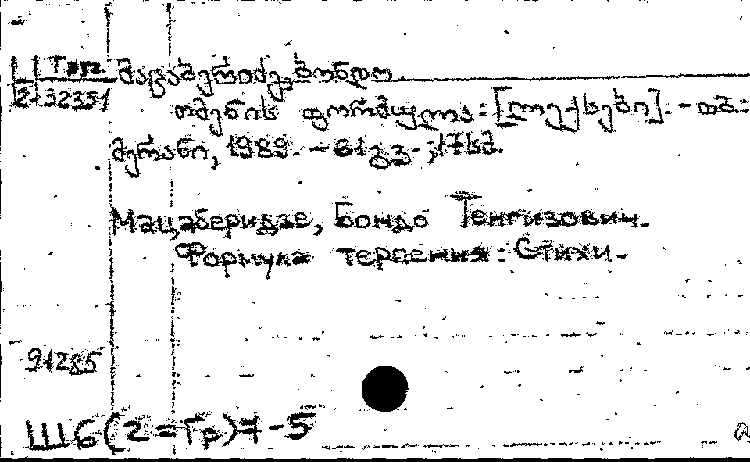 Ш Груз. მაცაბერიძე, ბონდო
2-32351
თმენის ფორმულა: [ლექსები]. - თბ.:
მერანი, 1989. - 61გვ.; 17სმ.
Мацаберидзе, Бондо Тенгизович.
Формула терпения: Стихи.
91285
Ш6(2=Гр)7-5